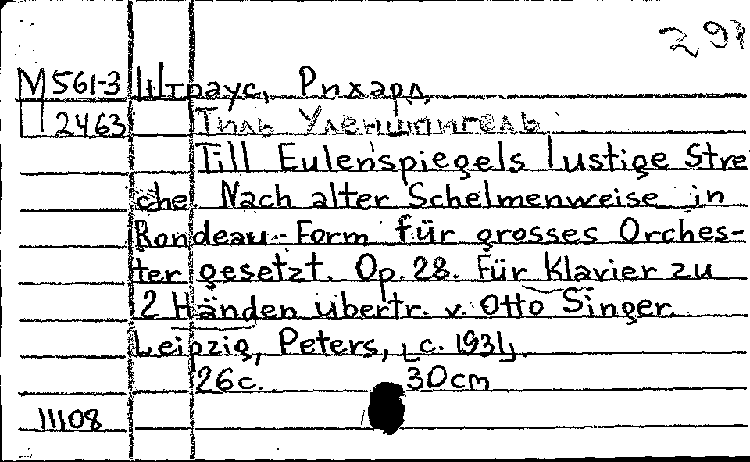 298
М561-3 Штраус, Рихард,
2463 Тиль Уленшпигель
Till Eulenspiegels lustige Strei
che. Nach alter Schelmenweise in
Rondeau-Form für grosses Orches-
ter gesetzt. Op. 28. Für Klavier zu
2 Händen übertr. v. Otto Singer.
Leipzig, Peters, [c. 1931].
26с. 30cm
11108